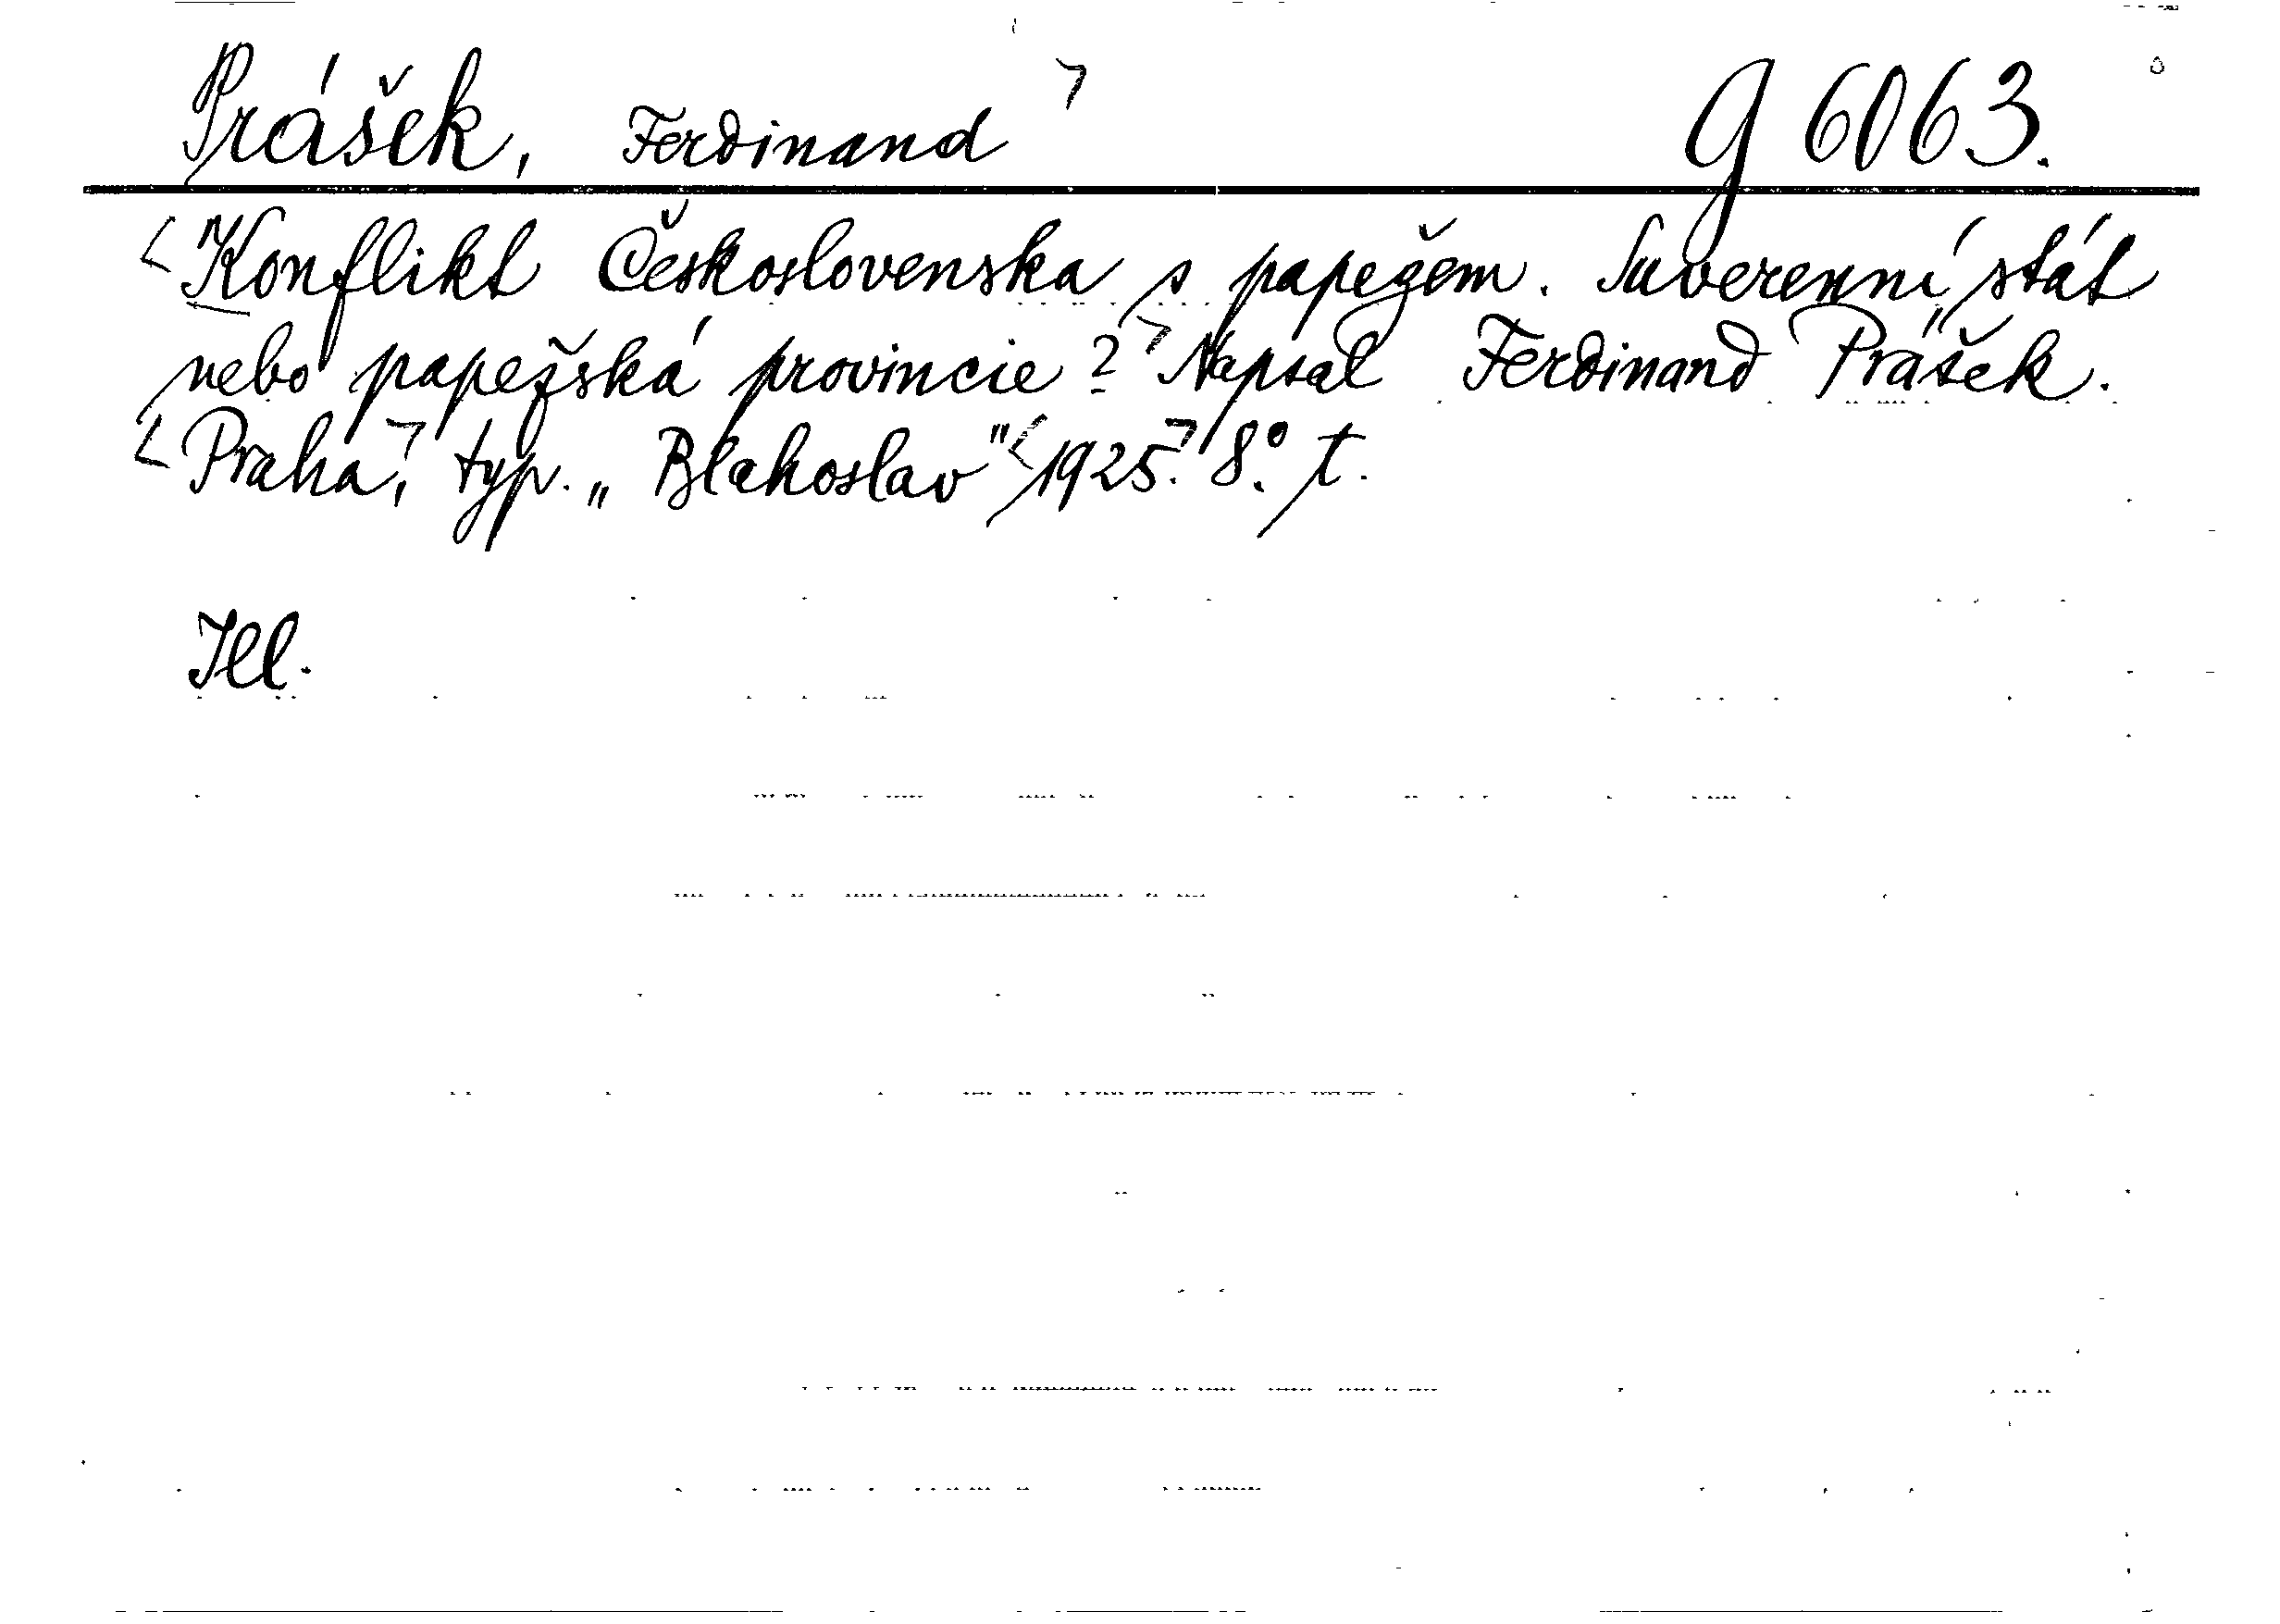 Prášek, Ferdinand g 6063.
Konflikt Československa s papežem. Suverenní stát
nebo papežská provincie? Napsal Ferdinand Prášek.
Praha, typ. „Blahoslav" 1925. 8°. t.
Ill.